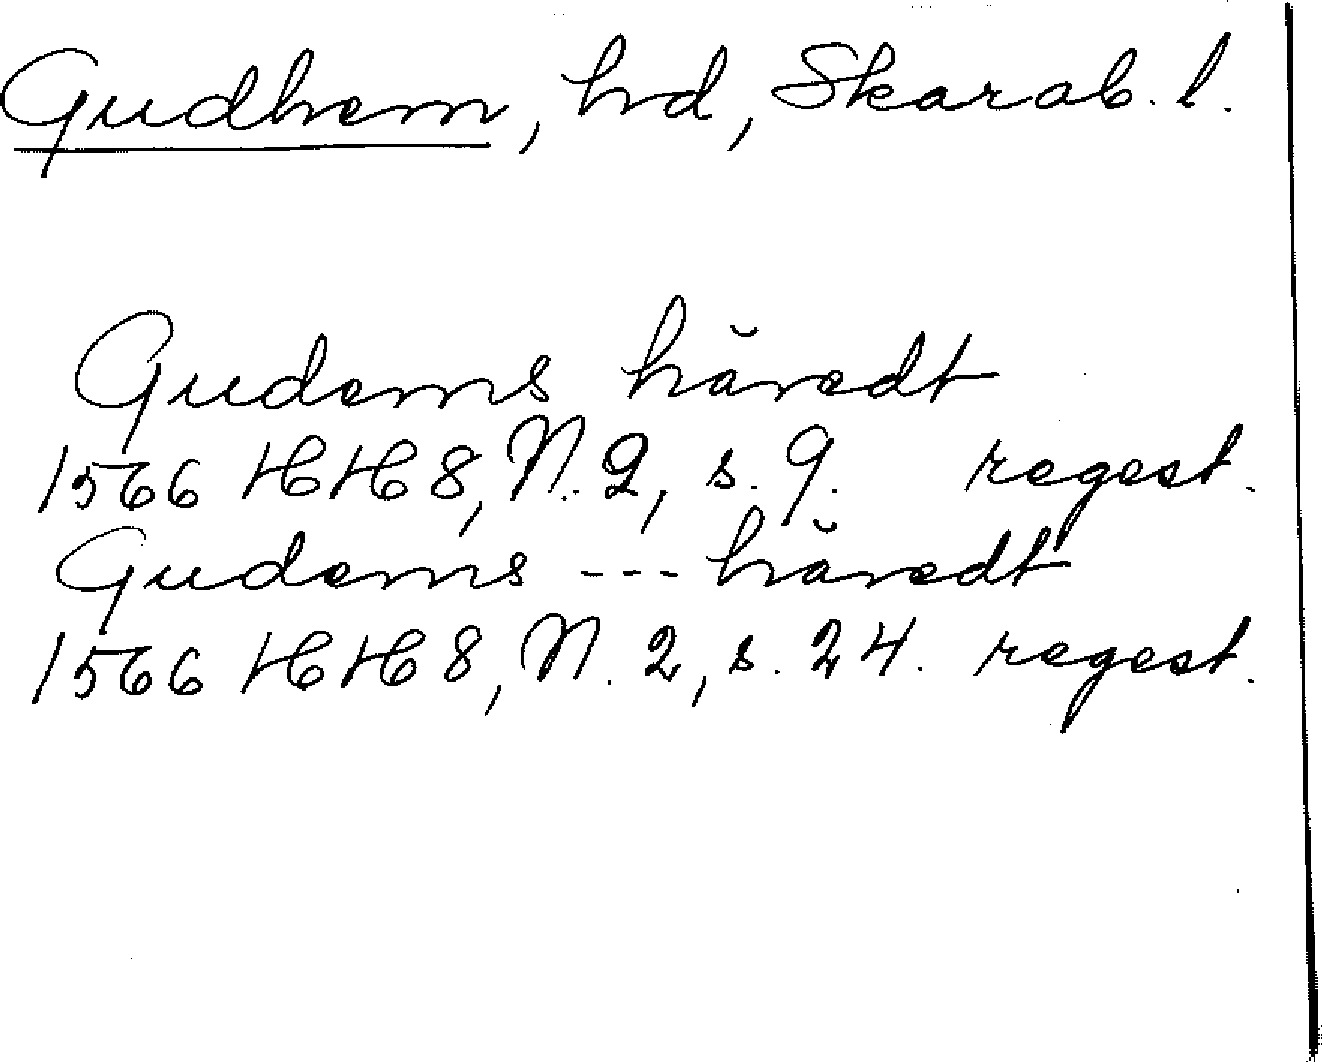 Gudhem, hd, Skarab. l.
Gudems häredt
1566 HH 8, N. 2, s. 9. regest.
Gudems --- häredt
1566 HH 8, N. 2, s. 24. regest.